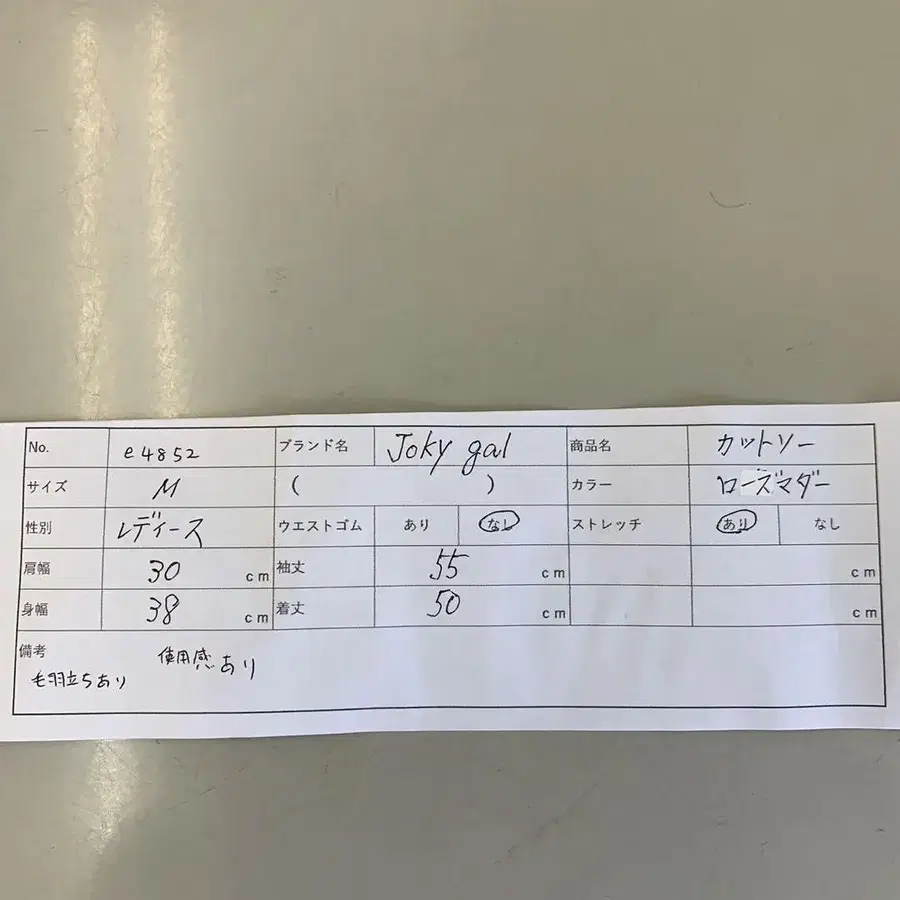 No. e4852 ブランド名 Joky gal 商品名 カットソー
サイズ M ( ) カラー ローズマダー
性別 レディース ウエストゴム あり なし ストレッチ あり なし
肩幅 30 cm 袖丈 55 cm cm
身幅 38 cm 着丈 50 cm cm
備考 使用感あり
毛羽立ちあり